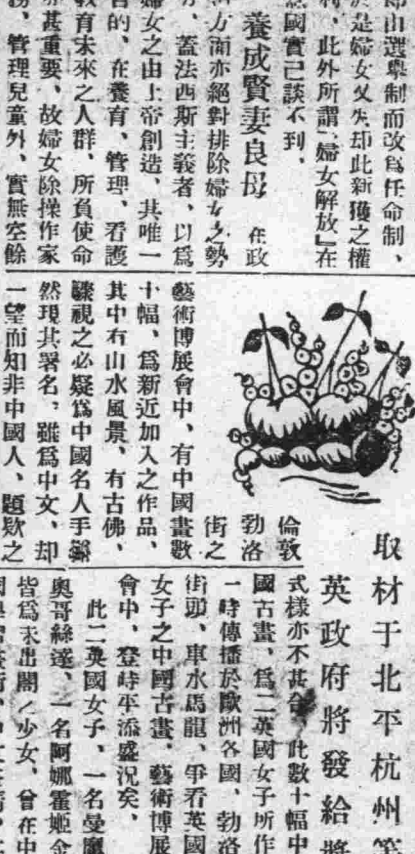 郎由選舉制而改爲任命制、
於是婦女又失却此新獲之權
利、此外所謂「婦女解放』在
國實已談不到、
養成賢妻良母 在政
方面亦絕對排除婦女之勢
、蓋法西斯主義者、以爲
婦女之由上帝創造、其唯一
目的、在養育、管理、看護
教育未來之人群、所負使命
甚重要、故婦女除操作家
務、管理兒童外、實無空餘
倫敦
勃洛
街之
藝術博展會中、有中國畫數
十幅、爲新近加入之作品、
其中有山水風景、有古佛、
驟視之必疑爲中國名人手
然現其署名、雖爲中文、却
一望而知非中國人、題欵之
取材于北平杭州等
英政府將發給獎
式樣亦不甚合、此數十幅中
國古畫、爲二英國女子所作
一時傳播於歐洲各國、勃洛
街頭、車水馬龍、爭看英國
女子之中國古畫、藝術博展
會中、登時平添盛況矣、
此二英國女子、一名曼麗
奧哥絲達、一名阿娜霍姬金
皆爲未出閣之少女、曾在中